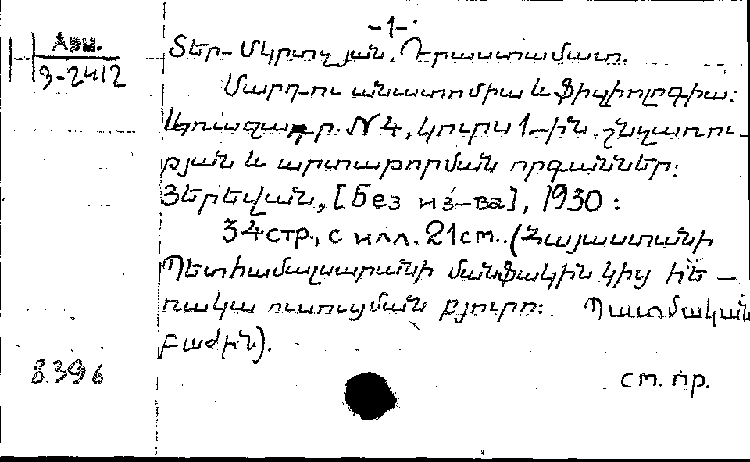 -1-
Арм.
3-2412
Տեր-Մկրտչյան, Դրաստամատ.
Մարդու անատոմիա և ֆիզիոլոգիա:
Առաջադր. N4, կուրս 1-ին. շնչառու-
թյան և արտաթորման օրգաններ:
Յերեվան, [Без из-ва], 1930:
34стр., с илл. 21см. (Հայաստանի
Պետհամալսարանի մանֆակին կից հե-
ռակա ուսուցման բյուրո: Պատմական
բաժին).
8396
см. пр.